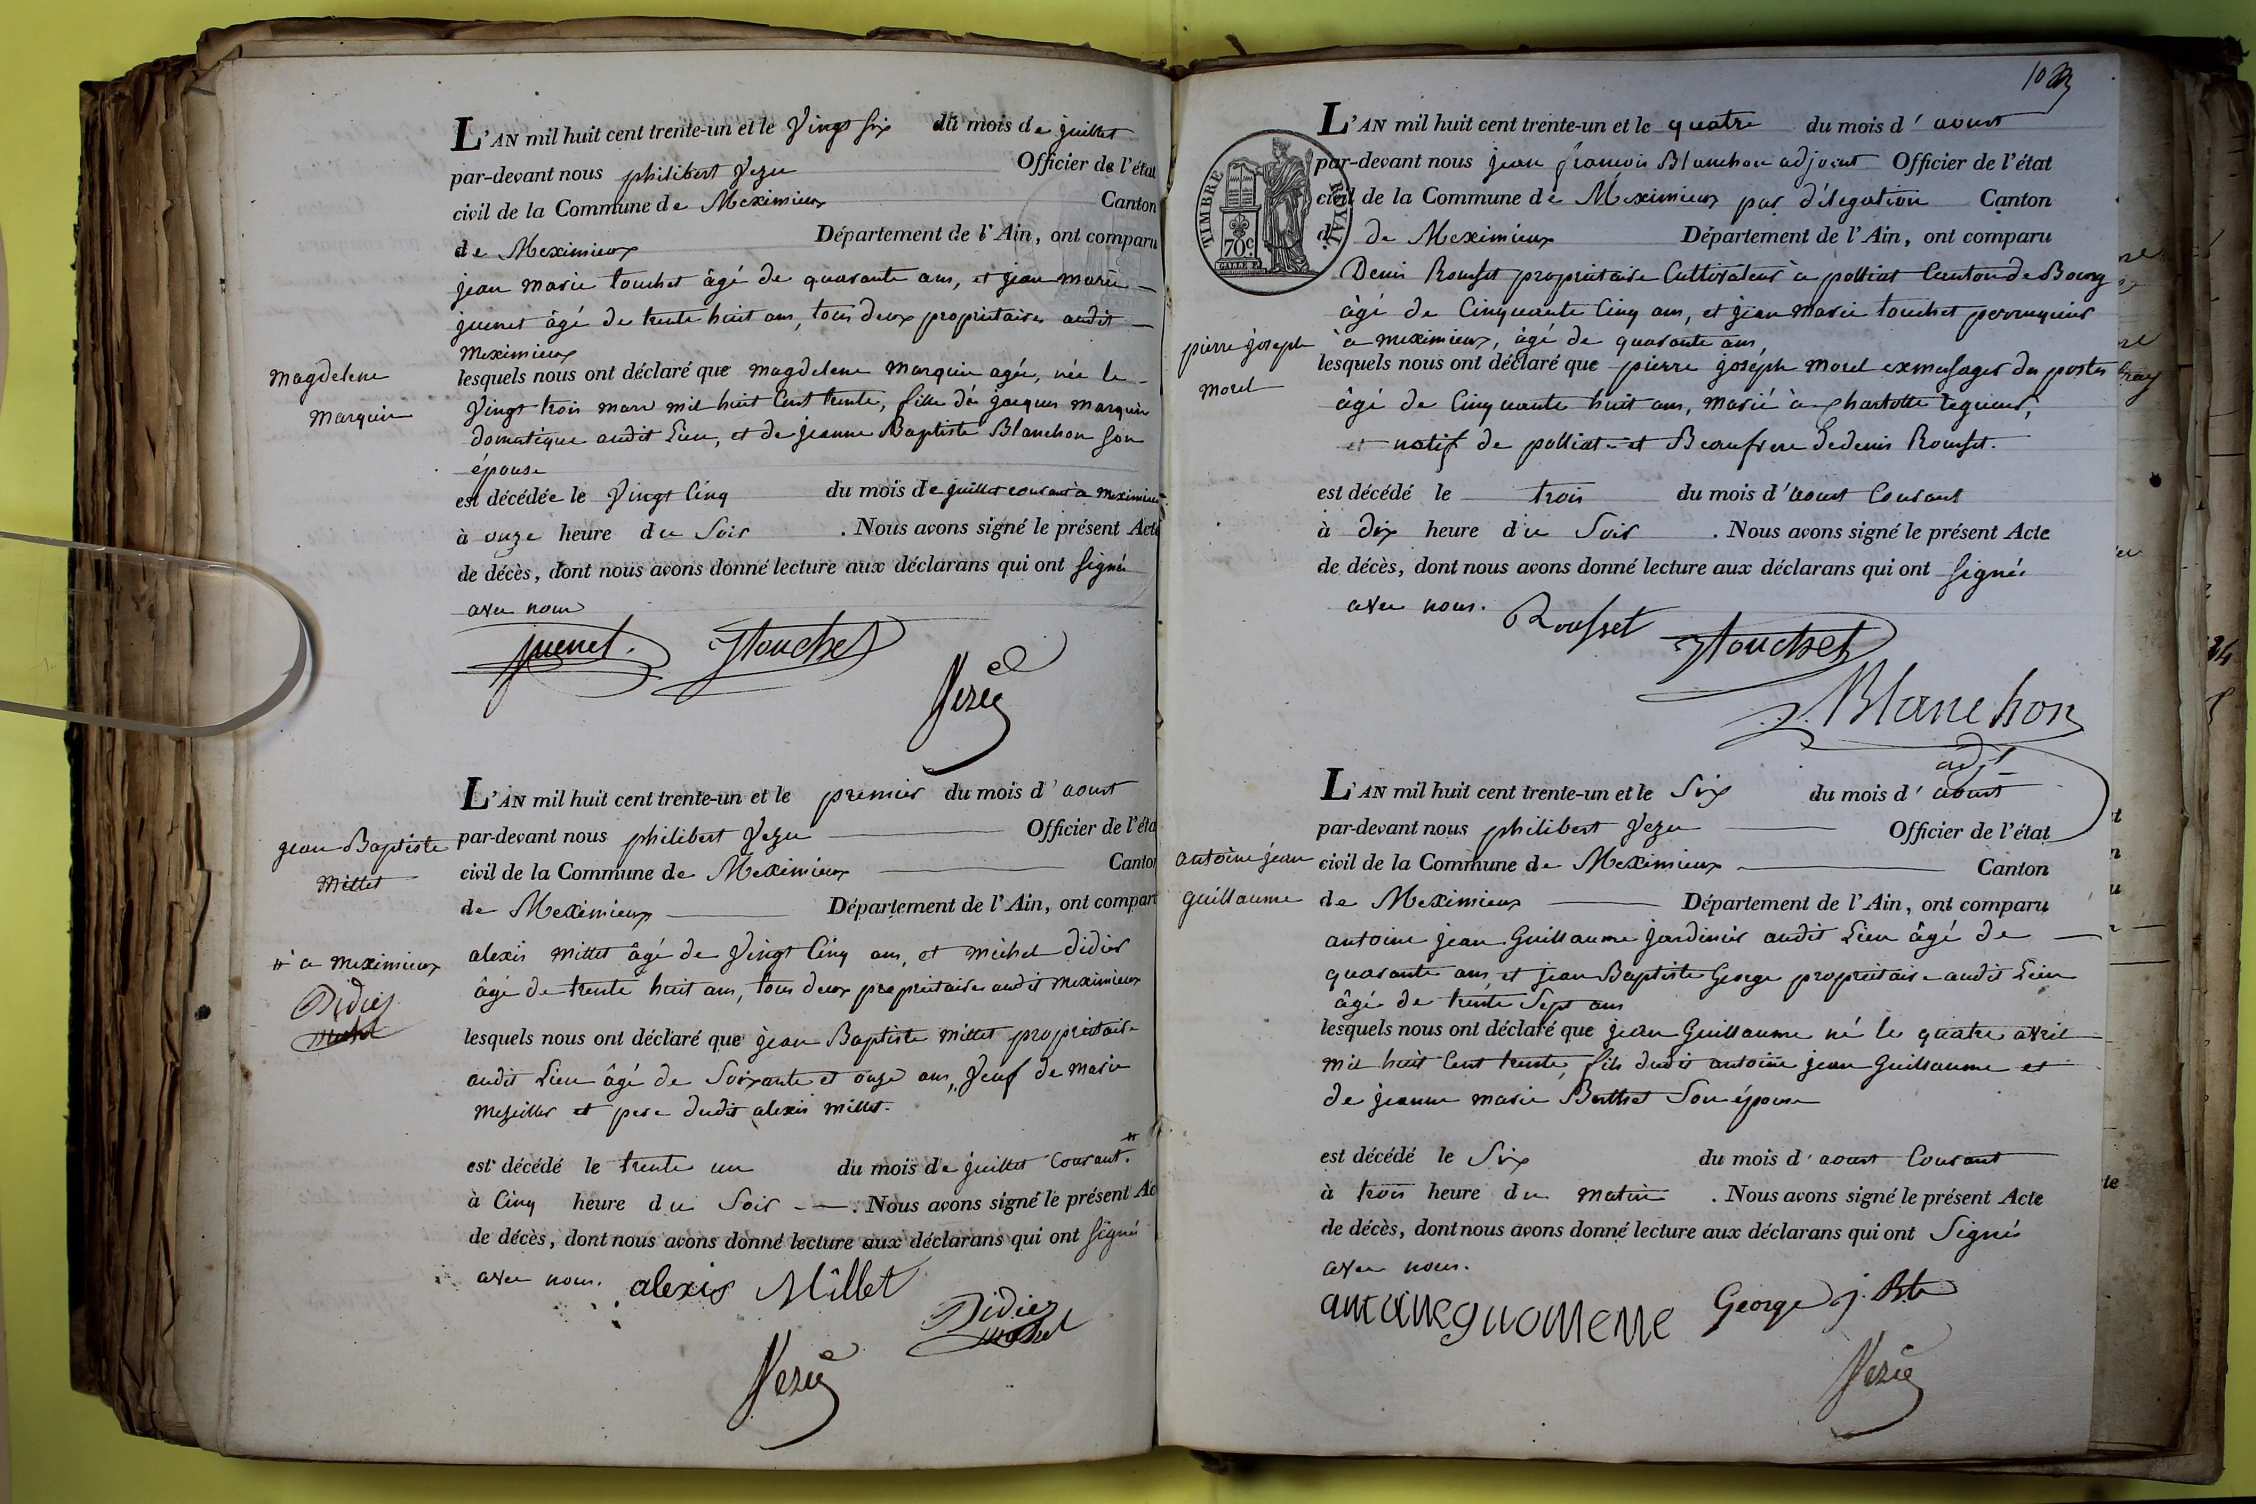 L'AN mil huit cent trente-un et le Vingt six du mois de juillet
par-devant nous philibert Vezu Officier de l'état
civil de la Commune de Meximieux Canton
de Meximieux Département de l'Ain, ont comparu
jean marie touchet âgé de quarante ans, et jean marie
juenet âgé de trente huit ans, tous deux propriétaires audit
Meximieux
magdelene
marquin
lesquels nous ont déclaré que magdelene marquin agée, née le
Vingt trois mars mil huit Cent trente, fille de jacques marquin
domestique audit Lieu, et de jeanne Baptiste Blanchon son
épouse
est décédée le Vingt Cinq du mois de juillet courant a meximieux
à onze heure du Soir . Nous avons signé le présent Acte
de décès, dont nous avons donné lecture aux déclarans qui ont signé
avec nous
juenet. Jtouchet
Vezu
L'AN mil huit cent trente-un et le premier du mois d'aoust
jean Baptiste
Millet
par-devant nous philibert Vezu Officier de l'éta
civil de la Commune de Meximieux Canton
de Meximieux Département de l'Ain, ont compar
alexis millet âgé de Vingt Cinq ans, et michel didier
âgé de trente huit ans, tous deux propriétaires audit meximieux
# à meximieux
Didier
michel
lesquels nous ont déclaré que jean Baptiste millet propriétaire
audit Lieu âgé de Soixante et onze ans, Veuf de marie
et pere dudit alexis millet.
est décédé le trente un du mois de juillet Courant. #
à Cinq heure du Soir . Nous avons signé le présent Ac
de décès, dont nous avons donné lecture aux déclarans qui ont signé
avec nous. alexis Millet
Didier
michel
Vezu
L'AN mil huit cent trente-un et le quatre du mois d'aoust
par-devant nous jean françois Blanchon adjoint Officier de l'état
civil de la Commune de Meximieux par délegation Canton
de Meximieux Département de l'Ain, ont comparu
TIMBRE ROYAL.
70c
Denis Rousset propriétaire Cultivateur à polliat Canton de Bourg
âgé de Cinquante Cinq ans, et jean marie touchet perruquier
à meximieux, âgé de quarante ans,
pierre joseph
morel
lesquels nous ont déclaré que pierre joseph morel exmessager des postes
âgé de Cinquante huit ans, marié à Charlotte
et natif de polliat et Beaufrere dedenis Rousset.
est décédé le trois du mois d'aoust Courant
à dix heure du Soir . Nous avons signé le présent Acte
de décès, dont nous avons donné lecture aux déclarans qui ont signé
avec nous. Rousset
Jtouchet
Blanchon
adjt
L'AN mil huit cent trente-un et le Six du mois d'aoust
par-devant nous philibert Vezu Officier de l'état
antoine jean
guillaume
civil de la Commune de Meximieux Canton
de Meximieux Département de l'Ain, ont comparu
antoine jean Guillaume jardinier audit Lieu âgé de
quarante ans, et jean Baptiste George propriétaire audit Lieu
âgé de trente Sept ans
lesquels nous ont déclaré que jean Guillaume né le quatre avril
mil huit Cent trente, fils dudit antoine jean Guillaume et
de jeanne marie Berthet Son épouse
est décédé le Six du mois d'aoust Courant
à trois heure du matin . Nous avons signé le présent Acte
de décès, dont nous avons donné lecture aux déclarans qui ont Signé
avec nous.
George j. Bte
Vezu